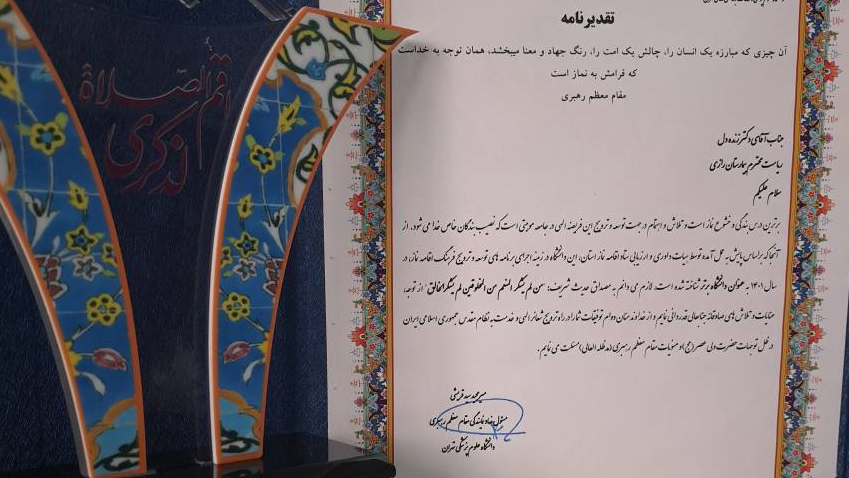 اقم الصلاة
لذکری
تقدیرنامه
آن چیزی که مبارزه یک انسان را، چالش یک امت را، رنگ جهاد و معنا میبخشد، همان توجه به خداست
که قرامش به نماز است
مقام معظم رهبری
جناب آقای دکتر زنده دل
ریاست محترم بیمارستان رازی
سلام علیکم
برترین درس بندگی و خشوع نماز است و تلاش و اهتمام در جهت توسعه و ترویج این فریضه الهی در جامعه موهبتی است که نصیب بندگان خاص خدا می شود. از
آنجا که بر اساس پایش به عمل آمده توسط هیات داوری و ارزیابی ستاد اقامه نماز استان، این دانشگاه در زمینه اجرای برنامه های توسعه و ترویج فرهنگ اقامه نماز، در
سال ۱۴۰۱ به عنوان دانشگاه برتر شناخته شده است. لازم می دانم به مصداق حدیث شریف: "من لم یشکر المنعم من المخلوقین لم یشکر الخالق" از توجه،
عنایات و تلاش های صادقانه جنابعالی قدردانی نمایم و از خداوند منان دوام توفیقات شما را در راه ترویج شعائر الهی و خدمت به نظام مقدس جمهوری اسلامی ایران
در ظل توجهات حضرت ولی عصر (عج) و منویات مقام معظم رهبری (مدظله العالی) مسئلت می نمایم.
میر مجید سید قریشی
مسئول نهاد نمایندگی مقام معظم رهبری
دانشگاه علوم پزشکی تهران